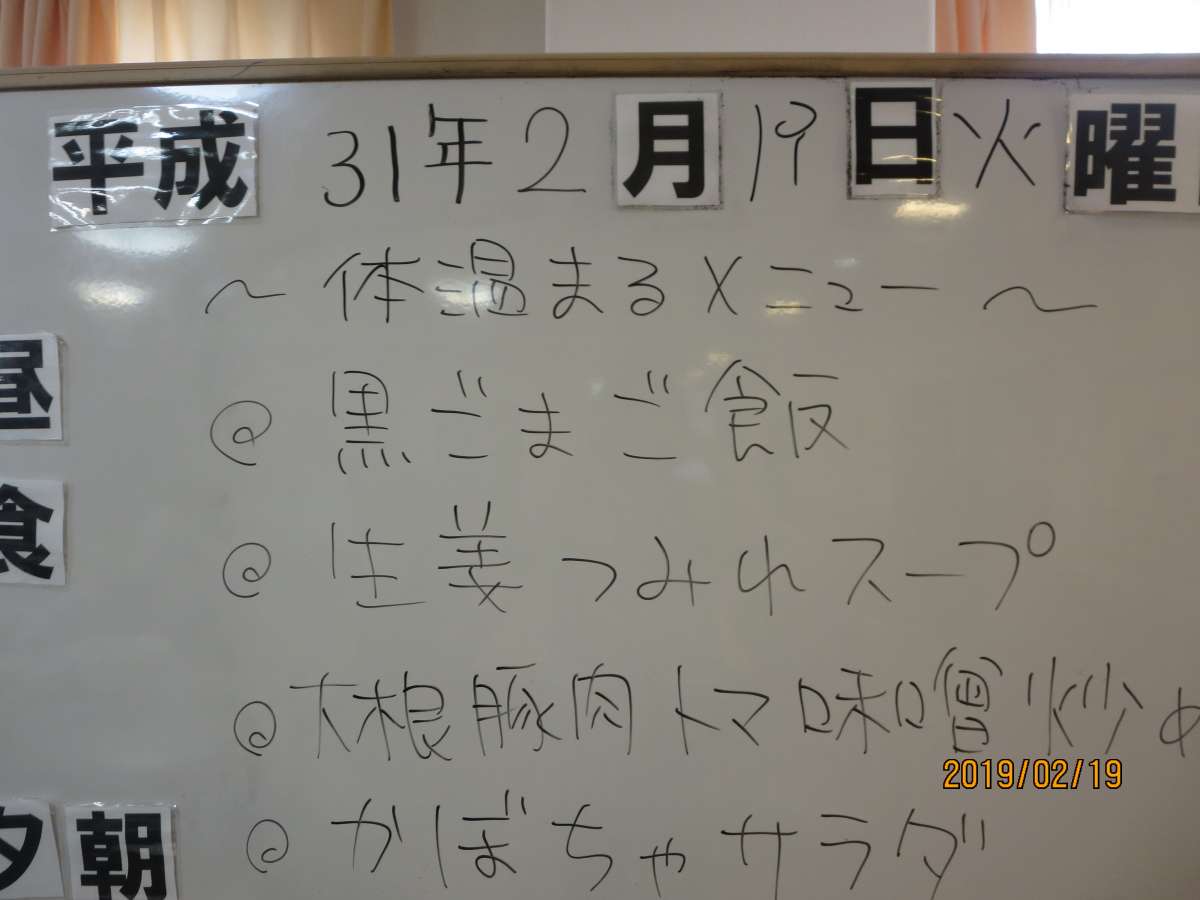 平成 31年2月19日火曜
～体温まるメニュー～
@ 黒ごまご飯
@ 生姜つみれスープ
@ 大根豚肉トマ味噌炒め
@ かぼちゃサラダ
昼
食
夕 朝
2019/02/19